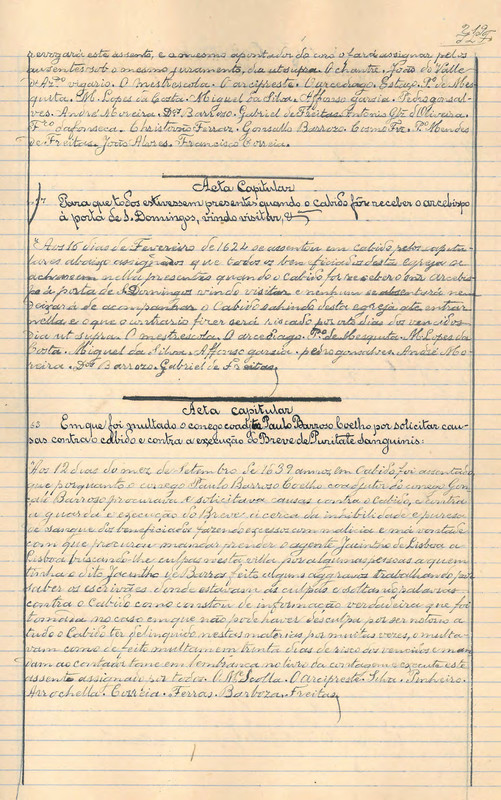 revogará este assento, e o mesmo apontador do cô o fará assignar pelos
auzentes sob o mesmo juramento, dia ut supra. O chantre, João do Valle
vigario. O mestrescola. O arcipreste. O arcediago. Pº de Mes-
quita. M. Lopes da Costa. Miguel da Silva. Affonso Garcia. Pedro gonsal-
ves. André Moreira. Dos Barrozo. Gabriel de Freitas. Antonio de Oliveira.
Frco da Fonseca. Christovão Ferraz. Gonsallo Barrozo. Cosme Frz. Pº Mendes
de Freitas. João Alves. Francisco Correia.
Acta Capitular
Para que todos estivessem presentes quando o cabido fôr receber o arcebispo
á porta de S. Domingos, vindo visitar, &
Aos 16 dias de Fevereiro de 1624 se assentou em Cabido pelos capitu-
lares abaixo assignados que todos os beneficiados desta Egreja se
achassem nella presentes quando o Cabido for receber o snr Arcebis-
po á porta de S. Domingos vindo visitar e nenhum se absentará nem
deixará de acompanhar o Cabido sahindo desta egreja até entrar
nella e o que o contrario fizer será riscado por oito dias dos vencidos
Dia ut supra. O mestrescola. O arcediago. Pº de Mesquita. M. Lopes da
Costa. Miguel da Silva. Affonso garcia. pedro gonsalves. André Mo-
reira. Dos Barrozo. Gabriel de Freitas
Acta capitular
63 Em que foi multado o conego condito Paulo Barroso Coelho por solicitar cau-
sas contra o cabido e contra a execução do Breve de Puritate sanguinis:
"Aos 12 dias do mez de Setembro de 1639 annos, em Cabido foi assentado,
que porquanto o conego Paulo Barrozo Coelho coadjutor do conego Gon-
çalo Barroso procurava e solicitava causas contra o Cabido, e contra
a guarda e execução do Breve á cerca da inhabilidade e pureza
de sangue dos beneficiados fazendo excessos com malicia e má vontade
com que procurou mandar prender o agente Jacintho de Lisboa a
Lisboa buscando-lhe culpas nesta villa por algumas pessoas a quem
tinha o dito Jacintho de Barros feito alguns aggravos trabalhando por
saber os escrivães donde estavam as culpas e soltario palavras
contra o Cabido como constou de informação verdadeira que foi
tomada no caso em que não pode haver desculpa por ser notorio a
todo o Cabido ter delinquido nestas materias por muitas vezes, o multa-
vam como de feito multam em trinta dias de risco dos vencidos e man-
dam ao contador tome em lembrança no livro da contagem e execute este
assento assignado por todos. O Me Scolla. O arcipreste. Silva. Pinheiro.
Arrochella. Correia. Ferras. Barboza. Freitas